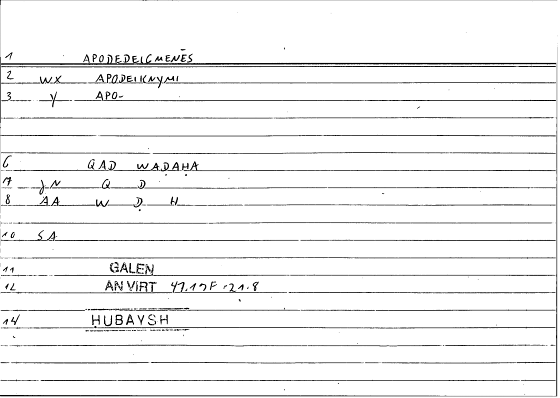 1 APODEDEIGMENĒS
2 WX APODEIKNYMI
3 Y APO-
6 QAD WAḌAḤA
7 JN Q D
8 AA W Ḍ Ḥ
10 SA
11 GALEN
12 AN VIRT
14 ḤUBAYSH